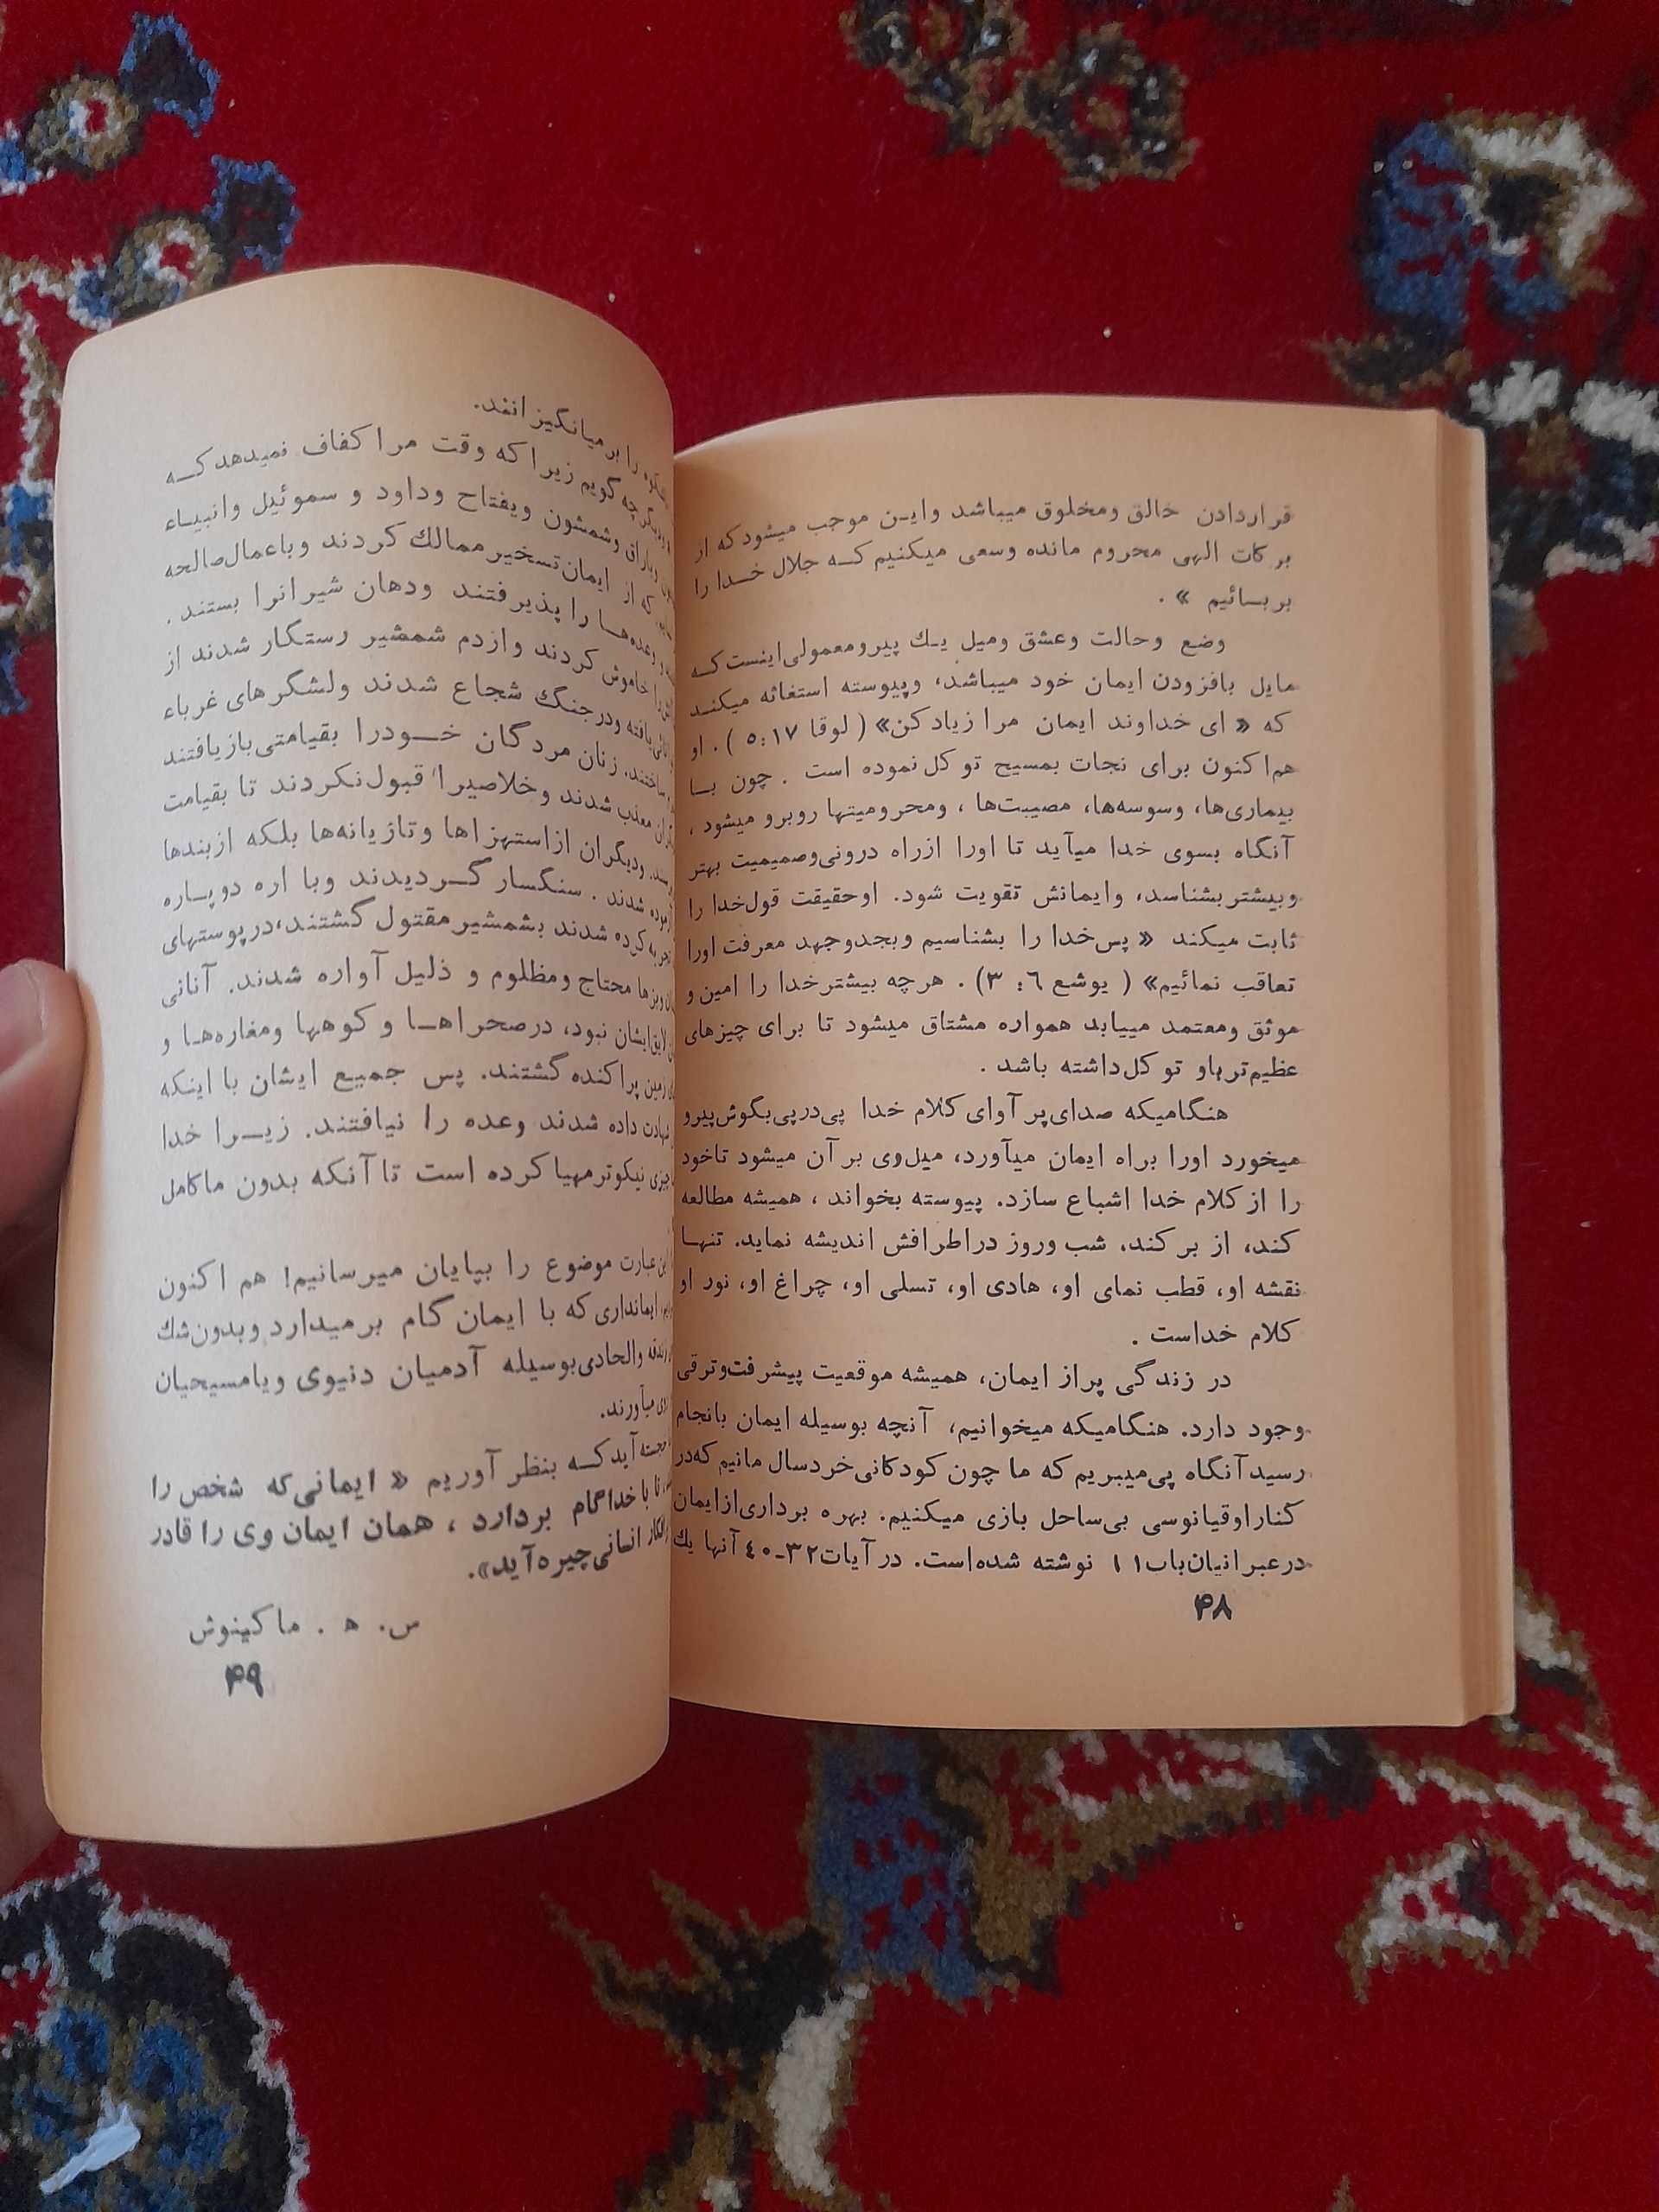 قراردادن خالق ومخلوق میباشد وایـن موجب میشود که از
برکات الهی محروم مانده وسعی میکنیم کـه جلال خـدا را
بربـائیم » .
وضع وحالت وعشق ومیل یـك پیرومعمولی اینست کـه
مایل بافزودن ایمان خود میباشد، وپیوسته استغاثه میکنـد
که « ای خداوند ایمان مرا زیاد کن» ( لوقا ۱۷:٥ ) . او
هم اکنون برای نجات بمسیح توکل نموده است . چون بـا
بیماری‌ها، وسوسه‌ها، مصیبت‌ها ، ومحرومیتها روبرو میشود ،
آنگاه بسوی خدا میآید تا اورا ازراه درونی وصمیمیت بهتر
وبیشتر بشناسد، وایمانش تقویت شود. اوحقیقت قول خدا را
ثابت میکند « پس خدا را بشناسیم وبجدوجهد معرفت اورا
تعاقب نمائیم» ( یوشع ٦: ۳) . هرچه بیشتر خدا را امین و
موثق ومعتمد مییابد همواره مشتاق میشود تا برای چیزهای
عظیم‌تر باو توکل داشته باشد .
هنگامیکه صدای پر آوای کلام خدا پی‌درپی بگوش پیرو
میخورد اورا براه ایمان میآورد، میل وی بر آن میشود تاخود
را از کلام خدا اشباع سازد. پیوسته بخواند ، همیشه مطالعه
کند، از بر کند، شب وروز دراطرافش اندیشه نماید. تنهـا
نقشه او، قطب نمای او، هادی او، تسلی او، چراغ او، نور او
کلام خداست .
در زندگی پراز ایمان، همیشه موقعیت پیشرفت وترقی
وجود دارد. هنگامیکه میخوانیم، آنچه بوسیله ایمان بانجام
رسید آنگاه پی میبریم که ما چون کودکانی خردسال مانیم که در
کنار اوقیانوسی بی‌ساحل بازی میکنیم. بهره برداری ازایمان
درعبرانیان باب ۱۱ نوشته شده است. در آیات ۳۲-٤۰ آنها یك
۴۸
را برمیانگیزانند.
چه گویم زیرا که وقت مرا کفاف نمیدهد کـه
وباراق وشمشون ویفتاح وداود و سموئیل وانبیـاء
که از ایمان تسخیر ممالك کردند وباعمال صالحه
وعده‌هـا را پذیرفتند ودهان شیرانرا بستند .
خاموش کردند وازدم شمشیر رستگار شدند از
یافته ودرجنگ شجاع شدند ولشگرهای غرباء
ساختند. زنان مردگان خـودرا بقیامتی بازیافتند
معذب شدند وخلاصیرا قبول نکردند تا بقیامت
ودیگران ازاستهزاها وتازیانه‌ها بلکه ازبندها
آزموده شدند . سنگسار گـردیدند وبا اره دوپـاره
تجربه کرده شدند بشمشیر مقتول گشتند، درپوستهای
وبزها محتاج ومظلوم و ذلیل آواره شدند. آنانی
لایق ایشان نبود، درصحراهـا و کوهها ومغاره‌هـا و
زمین پراکنده گشتند. پس جمیع ایشان با اینکه
شهادت داده شدند وعده را نیافتند. زیـرا خدا
چیزی نیکوتر مهیا کرده است تا آنکه بدون ما کامل
این عبارت موضوع را بپایان میرسانیم! هم اکنون
ایمانداری که با ایمان گام برمیدارد وبدون شك
والحادی بوسیله آدمیان دنیوی ویامسیحیان
میآورند.
آید کـه بنظر آوریم « ایمانی که شخص را
تا با خدا گام بردارد ، همان ایمان وی را قادر
انسانی چیره آید».
س. ه . ماکینوش
۴۹